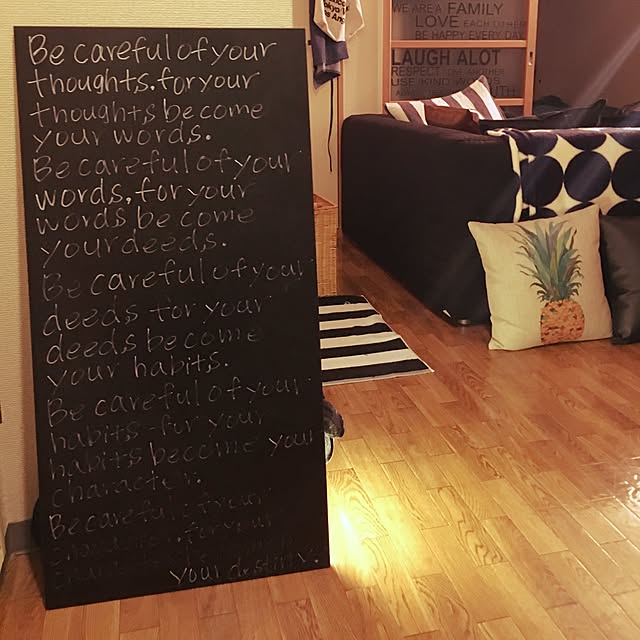 Be careful of your
thoughts. for your
thoughts become
your words.
Be careful of your
words, for your
words become
your deeds.
Be careful of your
deeds for your
deeds become
your habits.
Be careful of your
habits for your
habits become your
character.
Be careful of your
character, for your
your destiny.
WE ARE A FAMILY
LOVE EACH OTHER
BE HAPPY EVERY DAY
LAUGH ALOT
RESPECT ONE ANOTHER
USE KIND WORDS